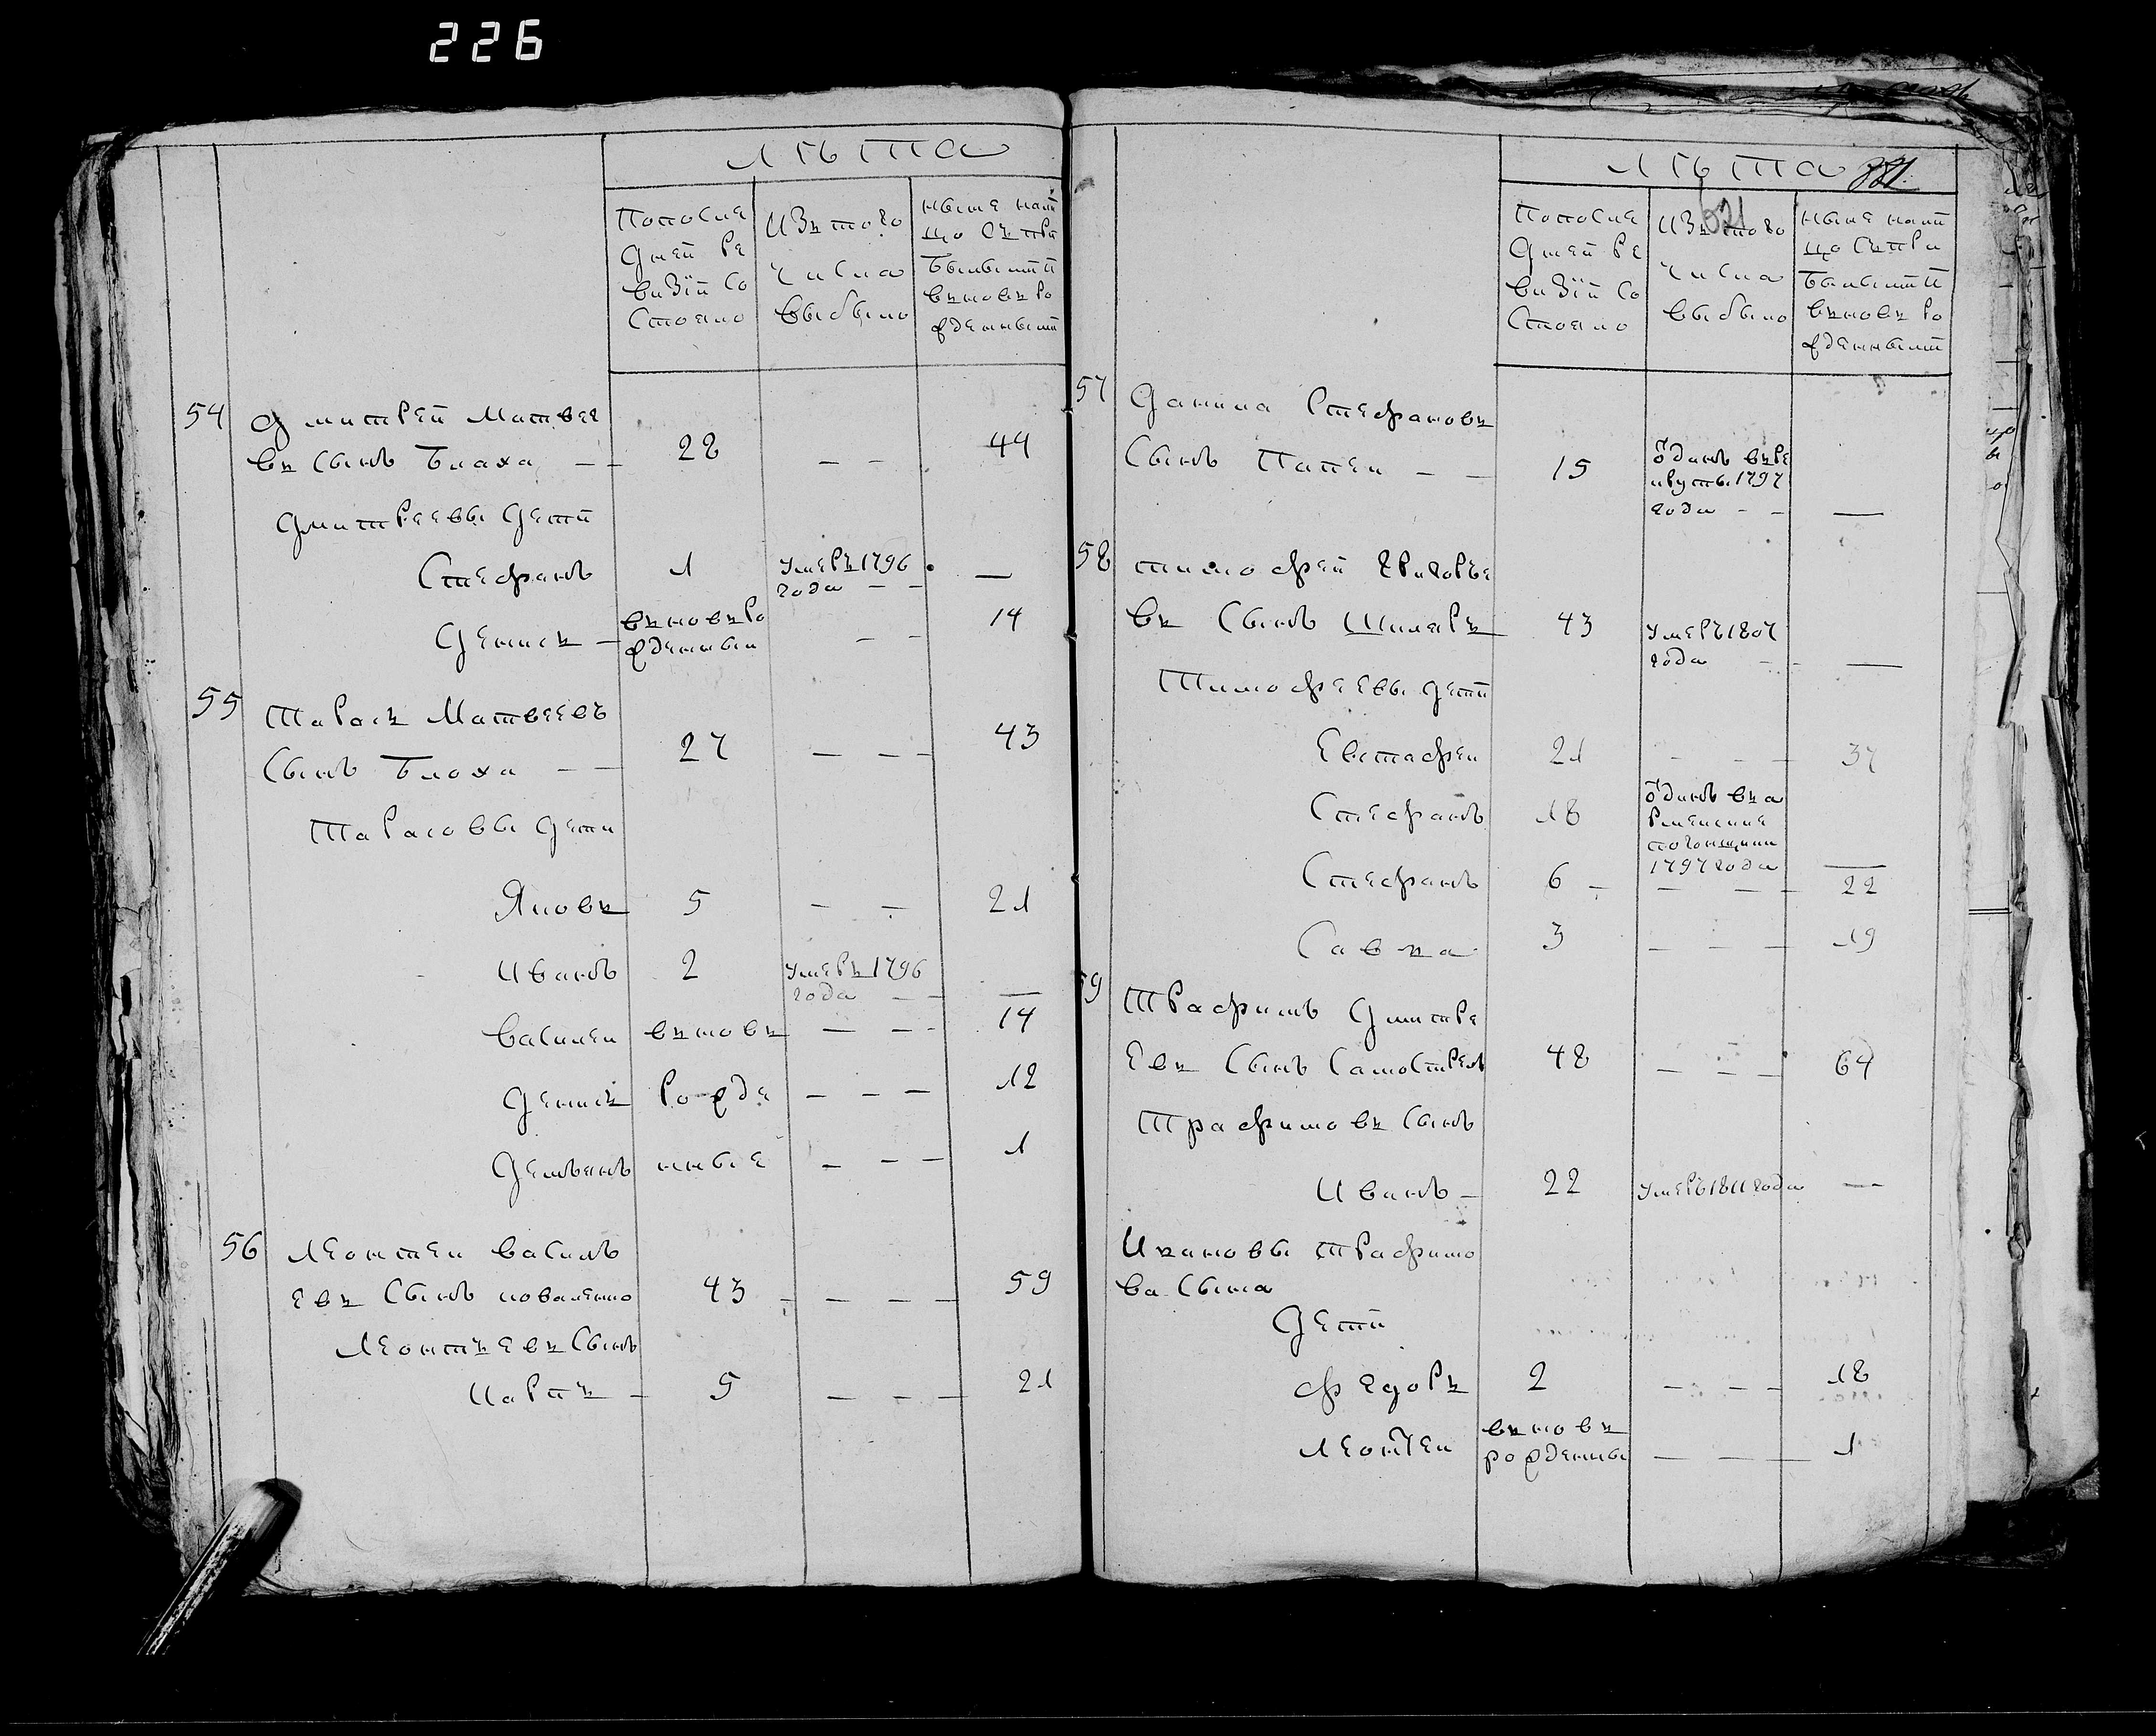 226
Лѣта
Попосле
дней ре
визiи со
стояло
Изъ того
числа
выбыло
Ныне налi
цо съ при
былымi
вновъ ро
жденнымi
54 Дмитрей Матвее
въ сынъ Блаха — — 28 — — 44
Дмитреевы детi
Стефанъ 1 умеръ 1796
года — — —
Денисъ — вновъ ро
жденныи — — 14
55 Тарасъ Матвеевъ
сынъ Блоха — — 27 — — — 43
Тарасовы дети
Яковъ 5 — — 21
Иванъ 2 умеръ 1796
года — — —
Василеи вновъ — — - 14
Денисъ рожде — — — 12
Демьянъ нные — — — 1
56 Леонтеи Василь
евъ сынъ коваленко 43 - — — — 59
Леонтьевъ сынъ
Карпъ — 5 — — — 21
Лѣта 321.
621
Попосле
дней ре
визiи со
стояло
Изъ того
числа
выбыло
Ныне налi
цо съ при
былымi
вновъ ро
жденнымi
57 Данила Стефановъ
сынъ Папеи — — 15 ѿданъ въ ре
круты 1797
года - - —
58 тимофей Григорье
въ сынъ Шиляръ 43 умеръ 1807
года - - —
Тимофеевы детi
Евстафеи 21 - - — 37
Стефанъ 18 ѿданъ въ а
рмейские
погонщики
1797 года —
Стефанъ 6 — — — 22
Савка 3 — — — 19
59 Трафимъ Дмитре
евъ сынъ Самостреловъ 48 — — — 64
Трафимовъ сынъ
Иванъ — 22 умеръ 1811 года —
Ивановы Трафимо
ва сына
детi
Федоръ 2 — — — 18
Леонтеи вновъ
рожденны — — — 1